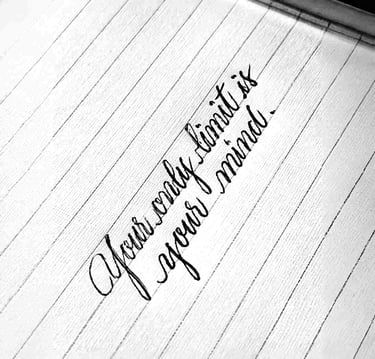 Your only limit is
your mind.